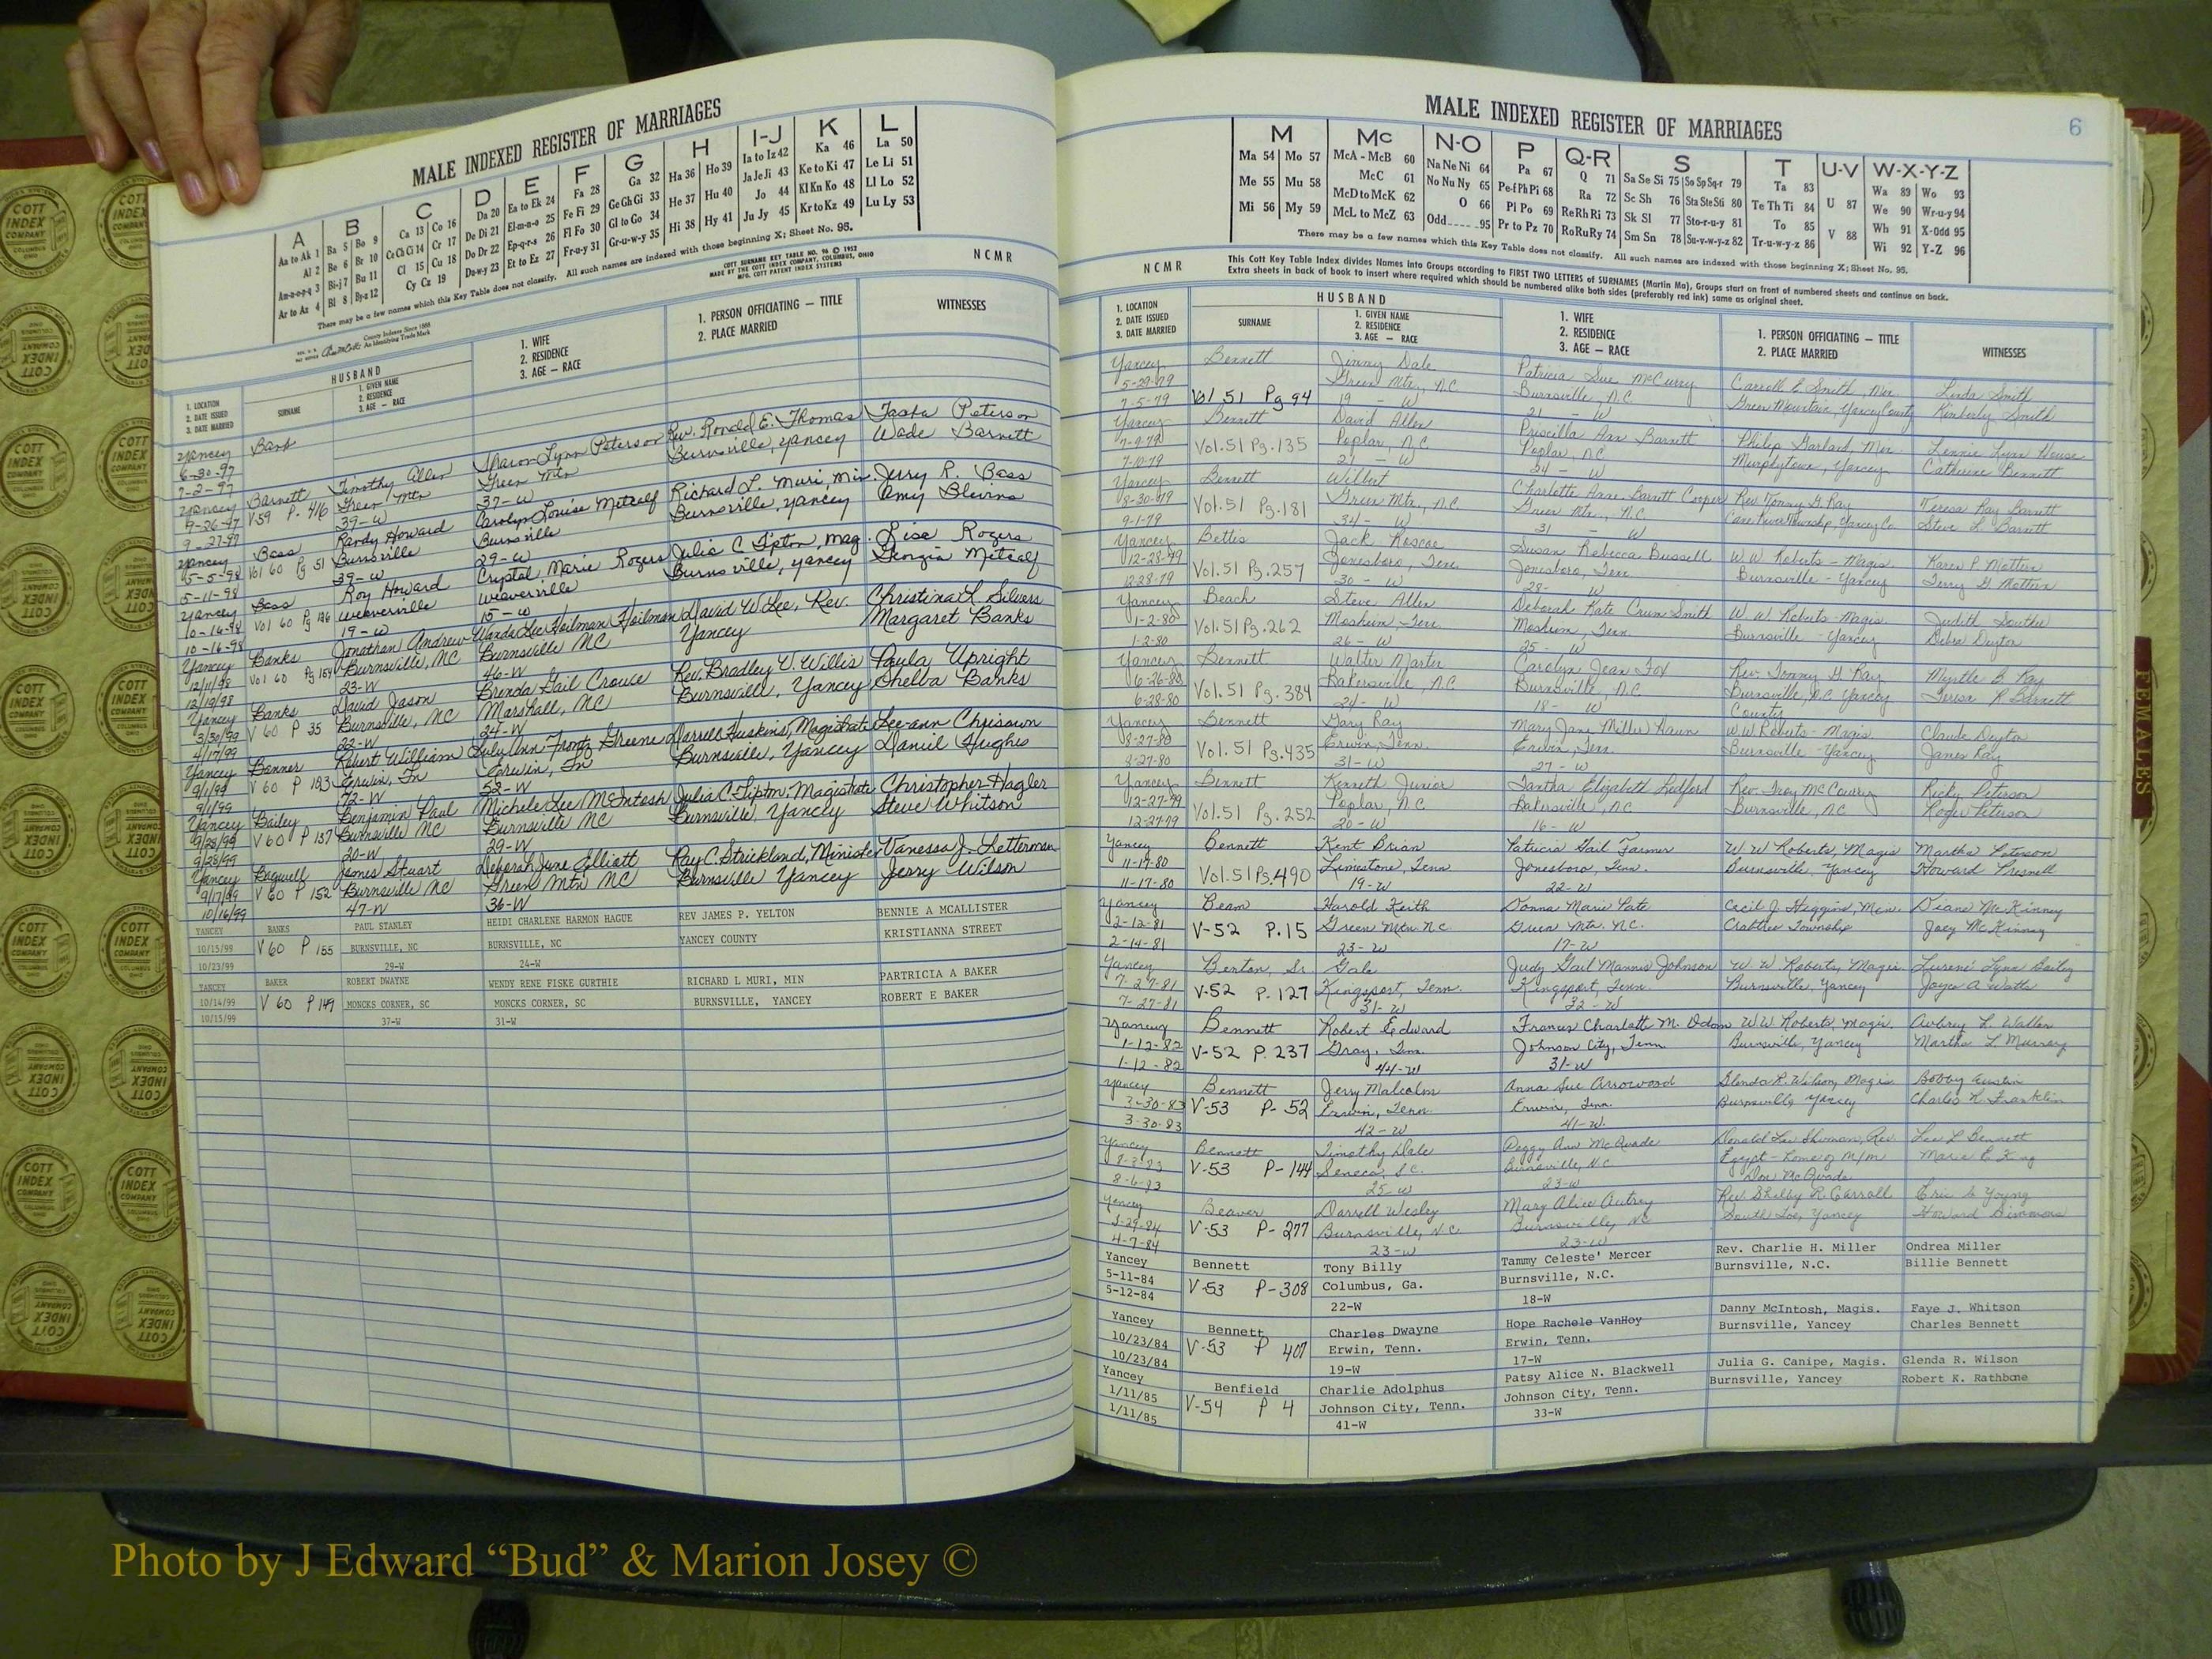 MALE INDEXED REGISTER OF MARRIAGES
A B C D E F G H I-J K L
Aa to Ak 1 Ba 5 Bo 9 Ca 13 Co 16 Da 20 Ea to Ek 24 Fa 28 Ga 32 Ha 36 Ho 39 Ia to Iz 42 Ka 46 La 50
Al 2 Be 6 Br 10 Ce Ch Ci 14 Cr 17 De Di 21 El-m-n-o 25 Fe Fi 29 Ge Gh Gi 33 He 37 Hu 40 Ja Je Ji 43 Ke to Ki 47 Le Li 51
Am-n-o-p-q 3 Bi-j 7 Bu 11 Cl 15 Cu 18 Do Dr 22 Ep-q-r-s 26 Fl Fo 30 Gl to Go 34 Hi 38 Hy 41 Jo 44 Kl Kn Ko 48 Ll Lo 52
Ar to Az 4 Bl 8 By-z 12 Cy Cz 19 Du-w-y 23 Et to Ez 27 Fr-u-y 31 Gr-u-w-y 35 Ju Jy 45 Kr to Kz 49 Lu Ly 53
There may be a few names which this Key Table does not classify. All such names are indexed with those beginning X; Sheet No. 95.
COTT SURNAME KEY TABLE NO. 96 © 1952
MADE BY THE COTT INDEX COMPANY, COLUMBUS, OHIO
MFG. COTT PATENT INDEX SYSTEMS
NCMR
County Indexes Since 1888
An Identifying Trade Mark
1. LOCATION
2. DATE ISSUED
3. DATE MARRIED
HUSBAND
SURNAME
1. GIVEN NAME
2. RESIDENCE
3. AGE — RACE
1. WIFE
2. RESIDENCE
3. AGE — RACE
1. PERSON OFFICIATING - TITLE
2. PLACE MARRIED
WITNESSES
Yancey Barnett Timothy Allen Sharon Lynn Peterson Rev. Ronald E. Thomas Tasha Peterson
6-30-97 Burnsville, Yancey Wade Barnett
7-2-97 Green Mtn
Yancey V59 P. 416 39-W 37-W
9-26-97 Bass Randy Howard Carolyn Louise Metcalf Richard L. Muri, Min. Jerry R. Bass
9-27-97 Burnsville Burnsville Burnsville, Yancey Amy Blevins
Yancey Vol 60 Pg 51 39-W 29-W
5-5-98 Bass Roy Howard Crystal Marie Rogers Julia C Tipton, Mag. Lisa Rogers
5-11-98 Weaverville Weaverville Burnsville, Yancey Georgia Metcalf
Yancey Vol 60 Pg 126 19-W 15-W
10-16-98
10-16-98
Yancey Banks Jonathan Andrew Wanda Lee Hoilman Hoilman David W. Lee, Rev. Christina L Silvers
12/11/98 Vol 60 Pg 154 Burnsville, NC Burnsville NC Yancey Margaret Banks
12/19/98 23-W 46-W
Yancey Banks David Jason Brenda Gail Crouse Rev. Bradley V. Willis Paula Upright
3/30/99 V 60 P 35 Burnsville, NC Marshall, NC Burnsville, Yancey Shelba Banks
4/17/99 22-W 24-W
Yancey Banner Robert William July Ann Frontz Greene Darrell Huskins, Magistrate Lee-ann Chrisawn
9/1/99 V 60 P 123 Erwin, Tn Erwin, Tn Burnsville, Yancey Daniel Hughes
9/1/99 72-W 52-W
Yancey Bailey Benjamin Paul Michele Lee McIntosh Julia C. Tipton, Magistrate Christopher Hagler
9/28/99 V 60 P 137 Burnsville NC Burnsville NC Burnsville, Yancey Steve Whitson
9/28/99 20-W 29-W
Yancey Bagwell James Stuart Deborah June Elliott Ray C. Strickland, Minister Vanessa J. Letterman
9/17/99 V 60 P 152 Burnsville NC Green Mtn NC Burnsville Yancey Jerry Wilson
10/16/99 47-W 36-W
YANCEY BANKS PAUL STANLEY HEIDI CHARLENE HARMON HAGUE REV JAMES P. YELTON BENNIE A MCALLISTER
10/15/99 V 60 P 155 BURNSVILLE, NC BURNSVILLE, NC YANCEY COUNTY KRISTIANNA STREET
10/23/99 29-W 24-W
YANCEY BAKER ROBERT DWAYNE WENDY RENE FISKE GURTHIE RICHARD L MURI, MIN PARTRICIA A BAKER
10/14/99 V 60 P 149 MONCKS CORNER, SC MONCKS CORNER, SC BURNSVILLE, YANCEY ROBERT E BAKER
10/15/99 37-W 31-W
MALE INDEXED REGISTER OF MARRIAGES
6
M Mc N-O P Q-R S T U-V W-X-Y-Z
Ma 54 Mo 57 McA - McB 60 Na Ne Ni 64 Pa 67 Q 71 Sa Se Si 75 So Sp Sq-r 79 Ta 83 Wa 89 Wo 93
Me 55 Mu 58 McC 61 No Nu Ny 65 Pe-f Ph Pi 68 Ra 72 Sc Sh 76 Sta Ste Sti 80 Te Th Ti 84 U 87 We 90 Wr-u-y 94
Mi 56 My 59 McD to McK 62 O 66 Pl Po 69 Re Rh Ri 73 Sk Sl 77 Sto-r-u-y 81 To 85 V 88 Wh 91 X-Odd 95
McL to McZ 63 Odd 95 Pr to Pz 70 Ro Ru Ry 74 Sm Sn 78 Su-v-w-y-z 82 Tr-u-w-y-z 86 Wi 92 Y-Z 96
There may be a few names which this Key Table does not classify. All such names are indexed with those beginning X; Sheet No. 95.
NCMR
This Cott Key Table Index divides Names into Groups according to FIRST TWO LETTERS of SURNAMES (Martin Ma), Groups start on front of numbered sheets and continue on back.
Extra sheets in back of book to insert where required which should be numbered alike both sides (preferably red ink) same as original sheet.
1. LOCATION
2. DATE ISSUED
3. DATE MARRIED
HUSBAND
SURNAME
1. GIVEN NAME
2. RESIDENCE
3. AGE — RACE
1. WIFE
2. RESIDENCE
3. AGE — RACE
1. PERSON OFFICIATING - TITLE
2. PLACE MARRIED
WITNESSES
Yancey Bennett Jimmy Dale Patricia Sue McCurry Carroll E. Smith, Min. Linda Smith
5-29-79 Green Mtn., N.C. Burnsville, N.C. Green Mountain, Yancey County Kimberly Smith
7-5-79 Vol 51 Pg 94 19 - W 21 - W
Yancey Bennett David Allen Priscilla Ann Barnett Philip Garland, Min. Lennie Lynn House
7-9-79 Vol. 51 Pg. 135 Poplar, N.C. Poplar, N.C. Murphytown, Yancey Catherine Bennett
7-10-79 21 - W 24 - W
Yancey Bennett Wilbert Charlotte Anne Barnett Cooper Rev. Tommy G. Ray Teresa Ray Barnett
8-30-79 Vol. 51 Pg. 181 Green Mtn., N.C. Green Mtn., N.C. Cane River Township, Yancey Co. Steve L. Barnett
9-1-79 34 - W 31 - W
Yancey Bettis Jack Roscoe Susan Rebecca Bussell W. W. Roberts - Magis. Karen P. Matten
12-28-79 Vol. 51 Pg. 257 Jonesboro, Tenn. Jonesboro, Tenn. Burnsville - Yancey Terry D. Matten
12-28-79 30 - W 28 - W
Yancey Beach Steve Allen Deborah Kate Crum Smith W. W. Roberts - Magis. Judith Souther
1-2-80 Vol. 51 Pg. 262 Mosheim, Tenn. Mosheim, Tenn. Burnsville - Yancey Debra Deyton
1-2-80 26 - W 25 - W
Yancey Bennett Walter Martin Carolyn Jean Fox Rev. Tommy G. Ray Myrtle B. Ray
6-26-80 Vol. 51 Pg. 384 Bakersville, N.C. Burnsville, N.C. Burnsville, N.C. Yancey Teresa R. Barnett
6-28-80 24 - W 18 - W County
Yancey Bennett Gary Ray Mary Jane Miller Haun W. W. Roberts - Magis. Claude Deyton
8-27-80 Vol. 51 Pg. 435 Erwin, Tenn. Erwin, Tenn. Burnsville - Yancey Janes Ray
8-27-80 31 - W 27 - W
Yancey Bennett Kenneth Junior Tantha Elizabeth Ledford Rev. Troy McCourry Ricky Peterson
12-27-79 Vol. 51 Pg. 252 Poplar, N.C. Bakersville, N.C. Burnsville, N.C. Roger Peterson
12-27-79 20 - W 16 - W
Yancey Bennett Kent Brian Patricia Gail Farmer W. W. Roberts, Magis Martha Peterson
11-17-80 Vol. 51 Pg. 490 Limestone, Tenn Jonesboro, Tenn. Burnsville, Yancey Howard Presnell
11-17-80 19-W 22-W
Yancey Beam Harold Keith Donna Marie Pate Cecil J. Higgins, Min. Diane McKinney
2-12-81 V-52 P. 15 Green Mtn. N.C. Green Mtn. N.C. Crabtree Township Joey McKinney
2-14-81 23-W 17-W
Yancey Benton, Sr. Gale Judy Gail Mannis Johnson W. W. Roberts, Magis. Lurene Lynn Bailey
7-27-81 V-52 P. 127 Kingsport, Tenn. Kingsport, Tenn. Burnsville, Yancey Joyce A. Watts
7-27-81 31-W 32-W
Yancey Bennett Robert Edward Frances Charlotte M. Odom W. W. Roberts, Magis. Aubrey L. Waller
1-12-82 V-52 P. 237 Gray, Tenn. Johnson City, Tenn. Burnsville, Yancey Martha L. Murray
1-12-82 44-W 31-W
Yancey Bennett Jerry Malcolm Anna Sue Arrowood Glenda R. Wilson, Magis. Bobby Austin
3-30-83 V-53 P- 52 Erwin, Tenn. Erwin, Tenn. Burnsville, Yancey Charles R. Franklin
3-30-83 42-W 41-W
Yancey Bennett Timothy Dale Peggy Ann McQuade Donald Lee Shuman, Rev. Lee L. Bennett
8-3-83 V-53 P-144 Seneca, S.C. Burnsville, N.C. Egypt - Home of M/M Marie E. King
8-6-83 25-W 23-W Don McQuade
Yancey Beaver Darrell Wesley Mary Alice Autrey Rev. Shelby R. Carroll Eric S. Young
3-29-84 V-53 P-277 Burnsville, N.C. Burnsville, NC South Toe, Yancey Howard Simmons
4-7-84 23-W 23-W
Yancey Bennett Tony Billy Tammy Celeste' Mercer Rev. Charlie H. Miller Ondrea Miller
5-11-84 V-53 P-308 Columbus, Ga. Burnsville, N.C. Burnsville, N.C. Billie Bennett
5-12-84 22-W 18-W
Yancey Bennett Charles Dwayne Hope Rachele VanHoy Danny McIntosh, Magis. Faye J. Whitson
10/23/84 V-53 P 407 Erwin, Tenn. Erwin, Tenn. Burnsville, Yancey Charles Bennett
10/23/84 19-W 17-W
Yancey Benfield Charlie Adolphus Patsy Alice N. Blackwell Julia G. Canipe, Magis. Glenda R. Wilson
1/11/85 V-54 P 4 Johnson City, Tenn. Johnson City, Tenn. Burnsville, Yancey Robert K. Rathbone
1/11/85 41-W 33-W
FEMALES
COTT INDEX COMPANY
Photo by J Edward “Bud” & Marion Josey ©